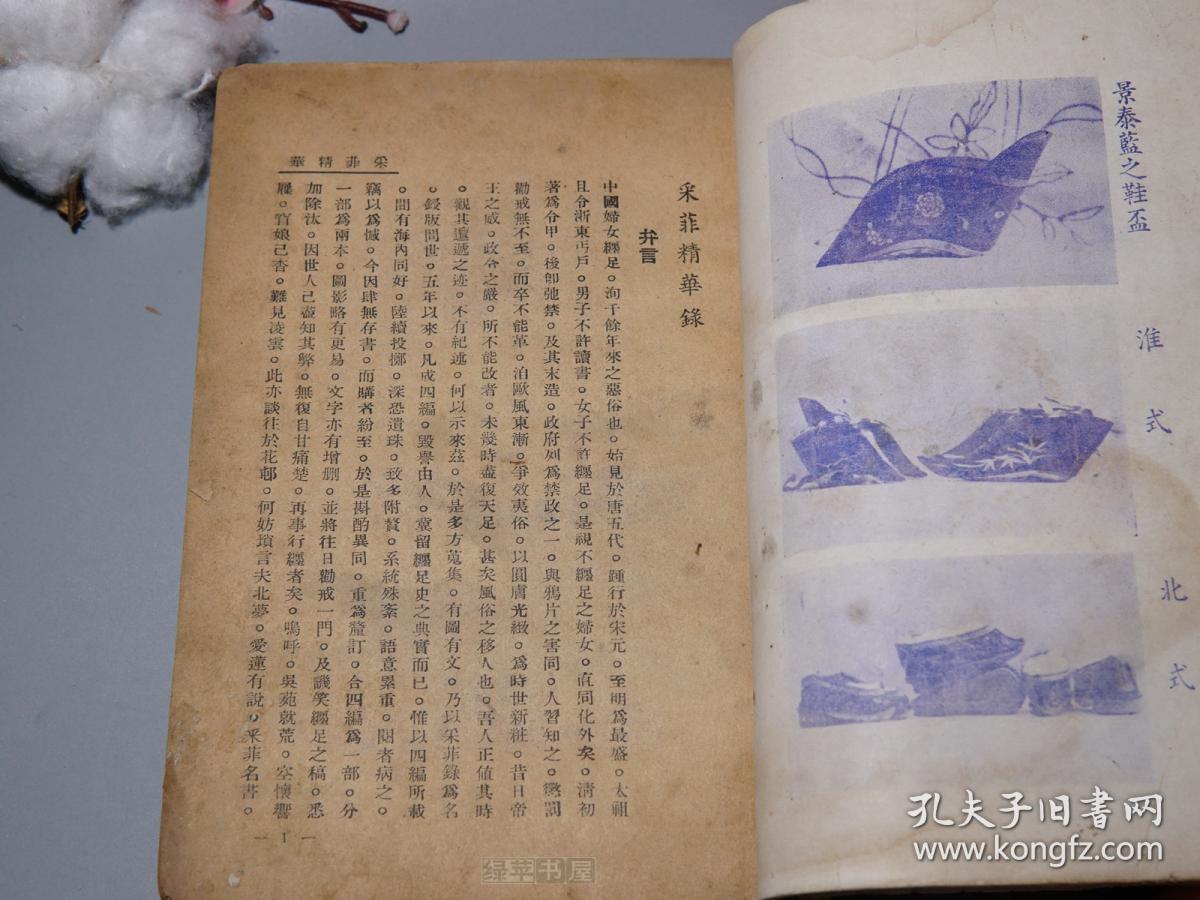 景泰藍之鞋盃
淮式
北式
采菲精華錄
弁言
中國婦女纏足。洵千餘年來之惡俗也。始見於唐五代。踵行於宋元。至明為最盛。太祖
且令浙東丐戶。男子不許讀書。女子不許纏足。是視不纏足之婦女。直同化外矣。清初
著為令甲。後卽弛禁。及其末造。政府列為禁政之一。與鴉片之害同。人習知之。懲罰
勸戒無不至。而卒不能革。洎歐風東漸。爭效夷俗。以圓膚光緻。為時世新粧。昔日帝
王之威。政令之嚴。所不能改者。未幾時盡復天足。甚矣風俗之移人也。吾人正値其時
。觀其遺遞之迹。不有紀述。何以示來茲。於是多方蒐集。有圖有文。乃以采菲錄為名
。鋟版問世。五年以來。凡成四編。毀譽由人。冀留纏足史之典實而已。惟以四編所載
。間有海內同好。陸續投擲。深恐遺珠。致多附贅。系統殊紊。語意累重。閱者病之。
竊以為憾。今因肆無存書。而購者紛至。於是斟酌異同。重為釐訂。合四編為一部。分
一部為兩本。圖影略有更易。文字亦有增刪。並將往日勸戒一門。及譏笑纏足之稿。悉
加除汰。因世人己盡知其弊。無復自甘痛楚。再事行纏者矣。嗚呼。吳苑就荒。空懷響
屧。窅娘己杳。難見凌雲。此亦談往於花邨。何妨瑣言夫北夢。愛蓮有說。采菲名書。
采菲精華
一1一
绿苹书屋
孔夫子旧书网
www.kongfz.com